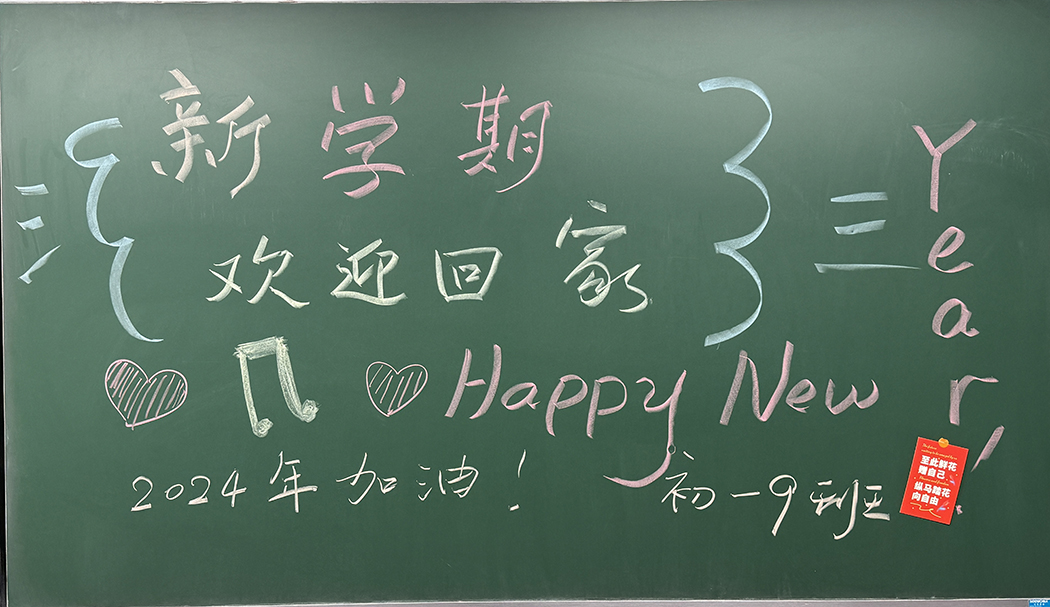 新学期
欢迎回家
Happy New Year,
2024年加油!
初一9班
至此鲜花
赠自己
纵马踏花
向自由